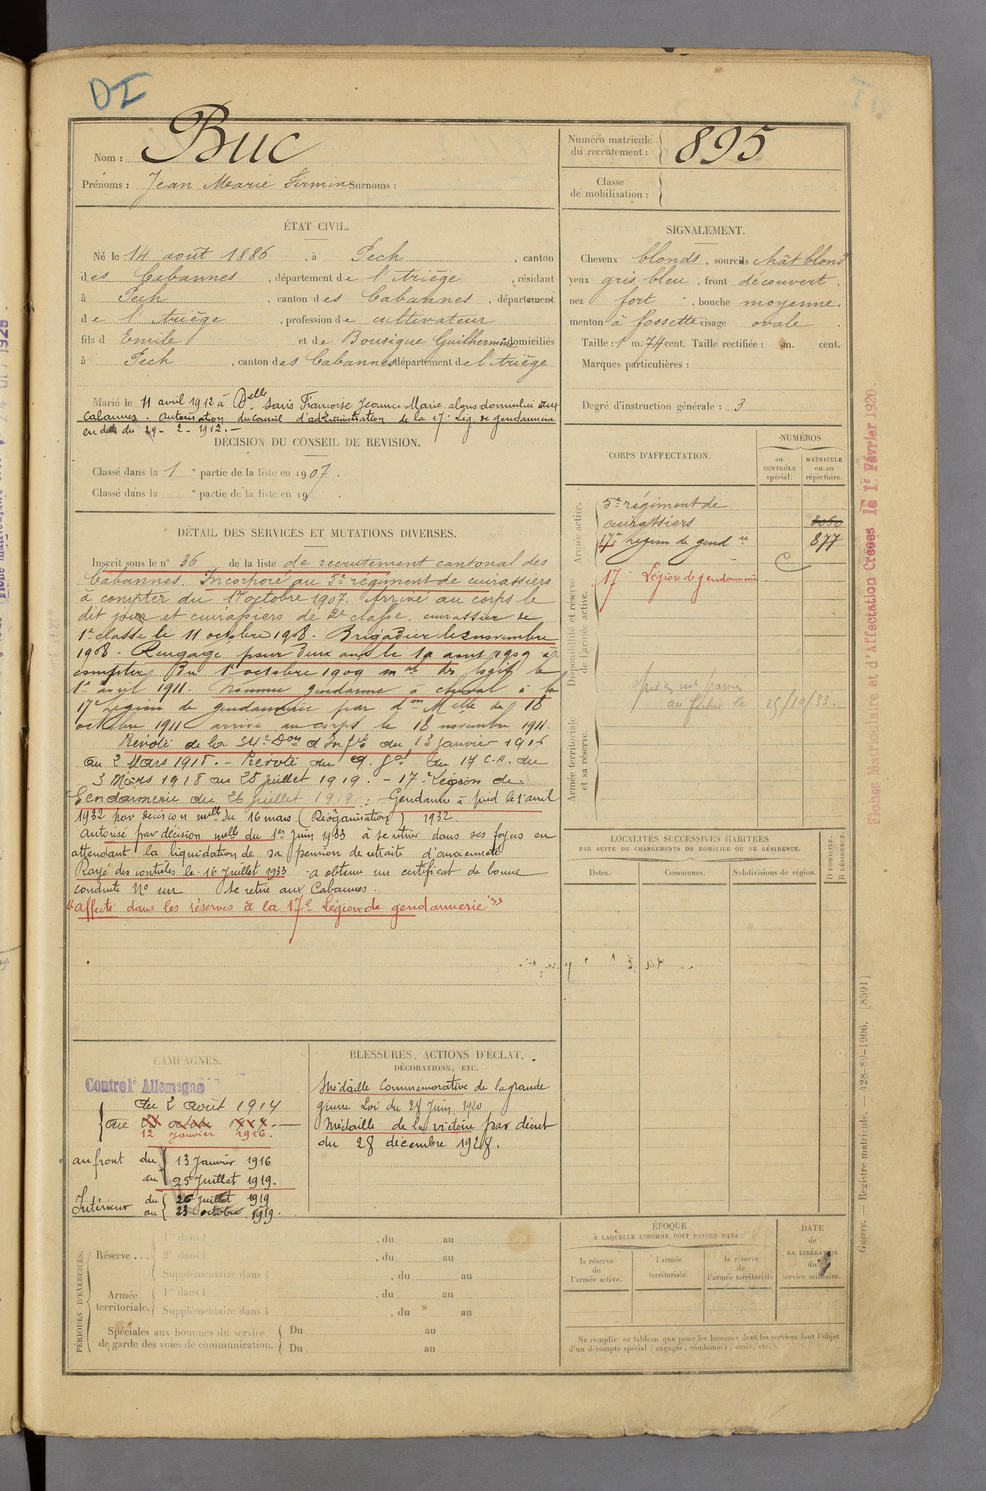 DI
Nom : Buc
Prénoms : Jean Marie Firmin Surnoms :
Numéro matricule du recrutement : 895
Classe de mobilisation :
ÉTAT CIVIL.
Né le 14 août 1886, à Pech, canton
des Cabannes, département de l'Ariège, résidant
à Pech, canton des Cabannes, département
de l'Ariège, profession de cultivateur
fils d Emile et de Bousique Guilhermine domiciliés
à Pech, canton des Cabannes département de l'Ariège
Marié le 11 avril 1912 à Delle Saris Françoise Jeanne Marie alors domiciliée aux
Cabannes. autorisation du conseil d'administration de la 17e Lég. de gendarmerie
en date du 29-2-1912.-
SIGNALEMENT.
Cheveux blonds, sourcils chât blond
yeux gris bleu, front découvert,
nez fort, bouche moyenne,
menton à fossette visage ovale.
Taille : 1 m. 74 cent. Taille rectifiée : m. cent.
Marques particulières :
Degré d'instruction générale : 3
DÉCISION DU CONSEIL DE REVISION.
Classé dans la 1e partie de la liste en 1907.
Classé dans la e partie de la liste en 19
DÉTAIL DES SERVICES ET MUTATIONS DIVERSES.
Inscrit sous le n° 36 de la liste de recrutement cantonal des
Cabannes. Incorporé au 5e régiment de cuirassiers
à compter du 1er octobre 1907. Arrivé au corps le
dit jour et cuirassiers de 2e classe. cuirassier de
1e classe le 11 octobre 1908. Brigadier le novembre
1908. Rengagé pour deux ans le 10 août 1909 à
compter du 1er octobre 1909 le
1er avril 1911. nommé gendarme à cheval à la
17e légion de gendarmerie par don Melle du 18
octobre 1911 arrivé au corps le 18 novembre 1911.
Prévôté de la 34e Don d'Infie du 13 janvier 1916
au 2 Mars 1918. - Prévôté du Q. Gal du 17 C.A. du
3 Mars 1918 au 25 juillet 1919. - 17e Légion de
Gendarmerie du 26 juillet 1919 : Gendarme à pied le 1er avril
1932 par décision mlle du 16 mars (Réorganisation) 1932.
autorisé par décision mlle du 1er juin 1933 à se retirer dans ses foyers en
attendant la liquidation de sa pension de retraite d'ancienneté
Rayé des contrôles le 16 Juillet 1933 a obtenu un certificat de bonne
conduite N° un Se retire aux Cabannes.
"affecté dans les réserves à la 17e Légion de gendarmerie"
CORPS D'AFFECTATION.
NUMÉROS
au CONTRÔLE spécial.
MATRICULE ou au RÉPERTOIRE.
Armée active.
5e régiment de
cuirassiers 3060
17e légion de gendie 877
Disponibilité et réserve de l'armée active.
17e Légion de gendarmerie
C
au fichier le 25/10/33.
Armée territoriale et sa réserve.
LOCALITÉS SUCCESSIVES HABITÉES
PAR SUITE DE CHANGEMENTS DE DOMICILE OU DE RÉSIDENCE.
Dates. Communes. Subdivisions de région.
D DOMICILE.
R RÉSIDENCE.
CAMPAGNES.
Contre l'Allemagne
du 2 août 1914
au
12 janvier 1916.
au front du 13 Janvier 1916
au 25 Juillet 1919.
Intérieur du 26 juillet 1919
au 23 octobre 1919.
BLESSURES, ACTIONS D'ÉCLAT,
DÉCORATIONS, ETC.
Médaille Commémorative de la grande
guerre Loi du 28 Juin 1920
Médaille de la victoire par décret
du 28 décembre 1928.
PÉRIODES D'EXERCICES.
Réserve... 1re dans l , du au
2e dans l , du au
Supplémentaire dans l , du au
Armée territoriale. 1re dans l , du au
Supplémentaire dans l , du au
Spéciales aux hommes du service Du au
de garde des voies de communication. Du au
ÉPOQUE
À LAQUELLE L'HOMME DOIT PASSER DANS :
la réserve de l'armée active.
l'armée territoriale.
la réserve de l'armée territoriale
DATE DE LA LIBÉRATION du service militaire.
Ne remplir ce tableau que pour les hommes dont les services font l'objet
d'un décompte spécial (engagés, condamnés, omis, etc.).
Fiches Matriculaire et d'Affectation Créées le 1er Février 1920.
Guerre. — Registre matricule. — 428-89-1906. [8591]